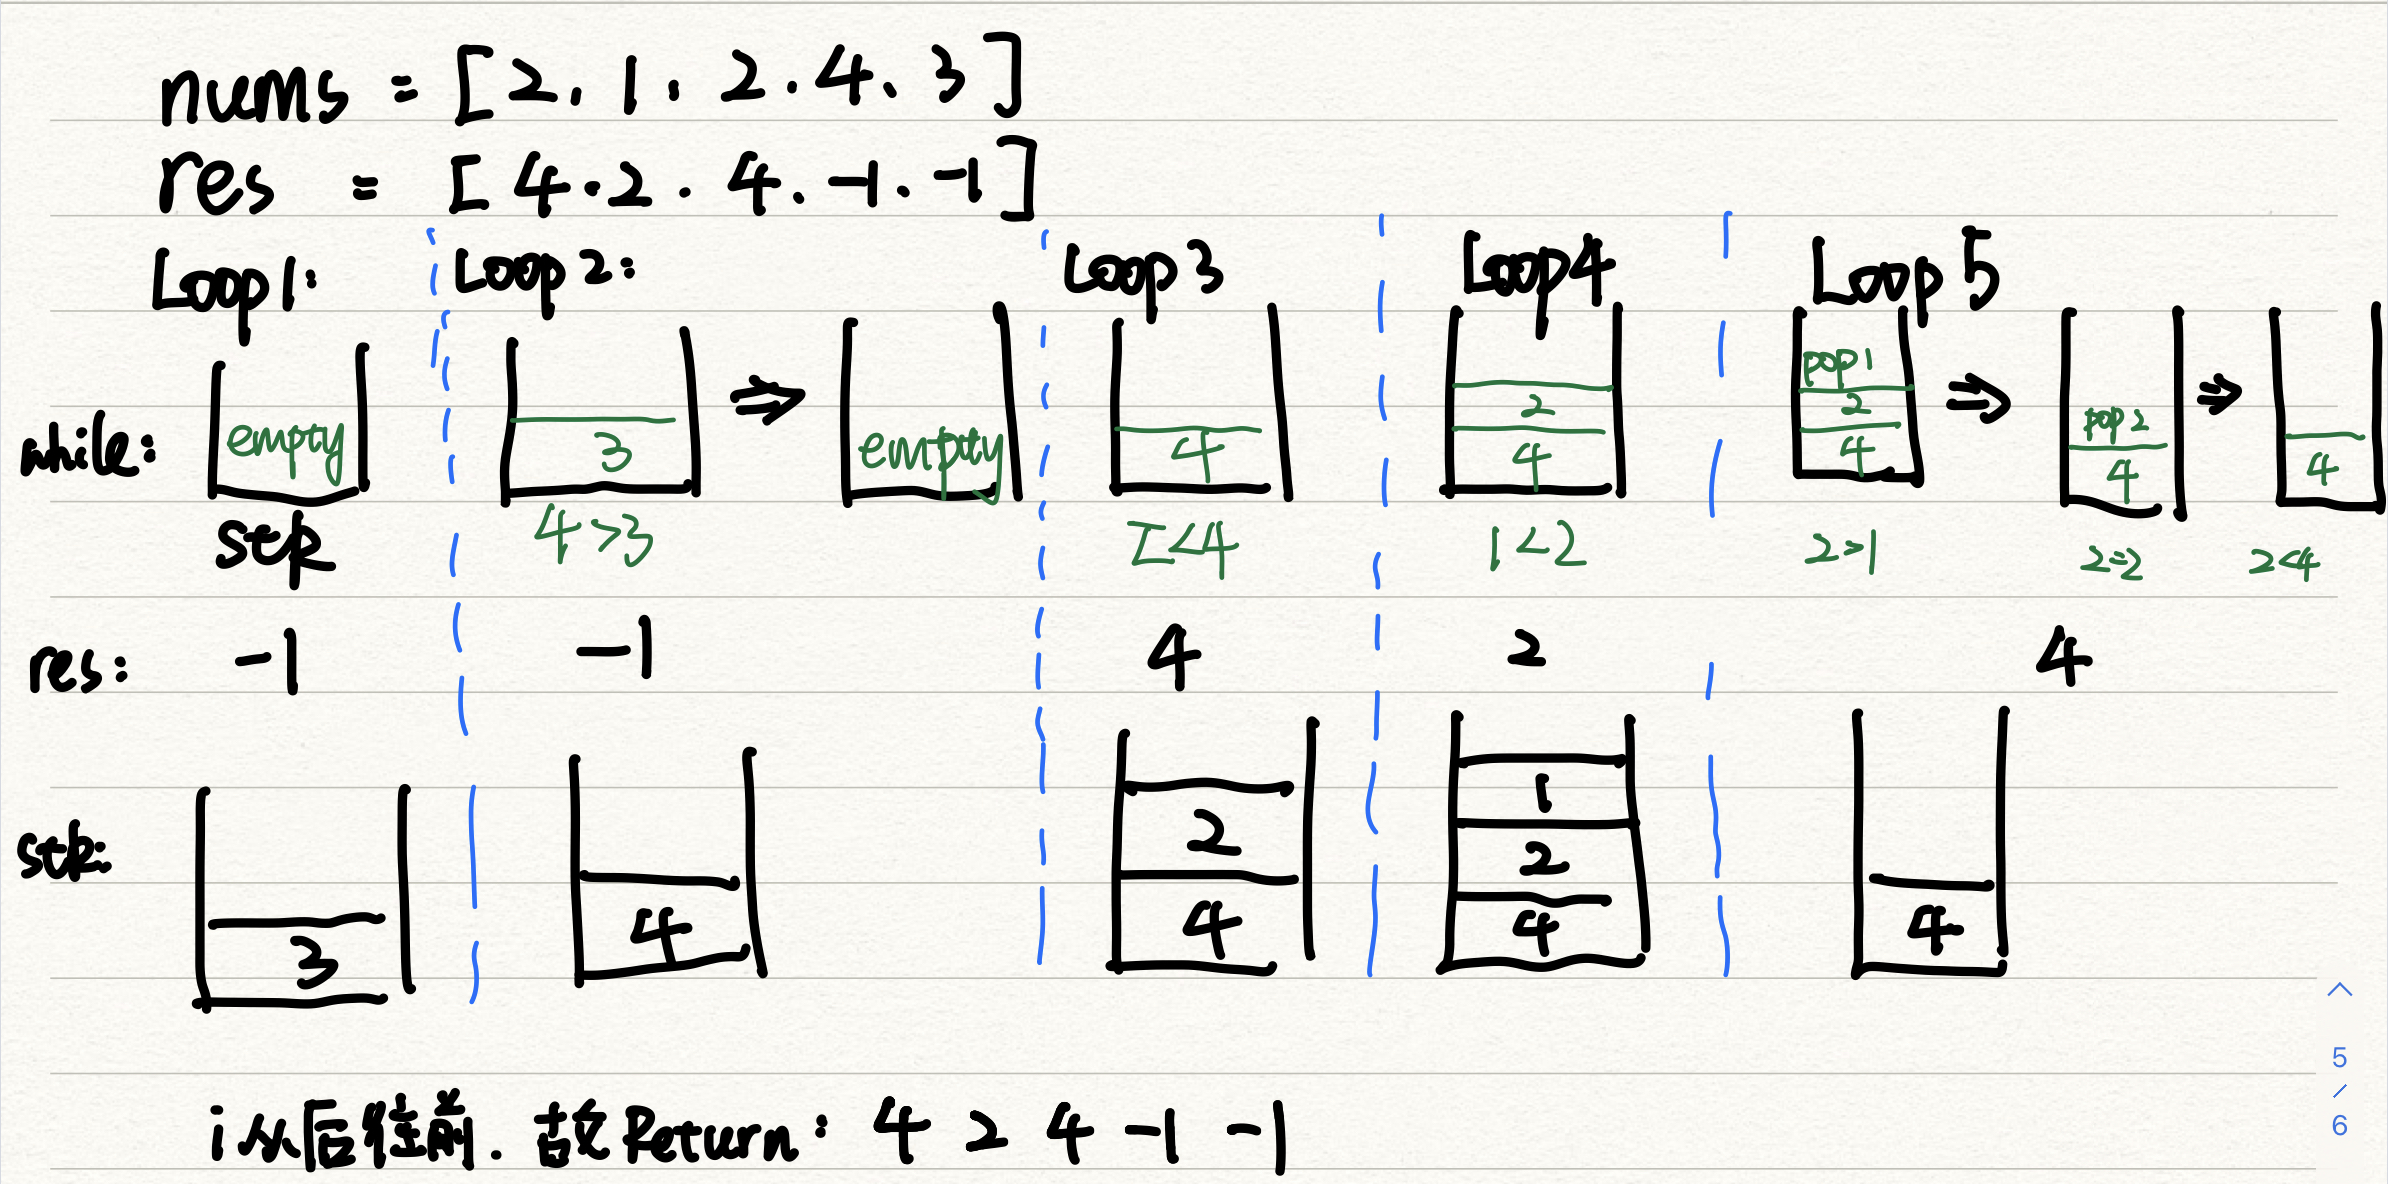 nums = [2, 1, 2, 4, 3]
res = [4, 2, 4, -1, -1]
Loop1: Loop2: Loop3 Loop4 Loop5
while:
empty
3
empty
4
2
4
pop1
2
4
pop2
4
4
stk
4>3
2<4
1<2
2>1
2=2
2<4
res: -1 -1 4 2 4
stk:
3
4
2
4
1
2
4
4
i从后往前. 故Return: 4 2 4 -1 -1
5
/
6